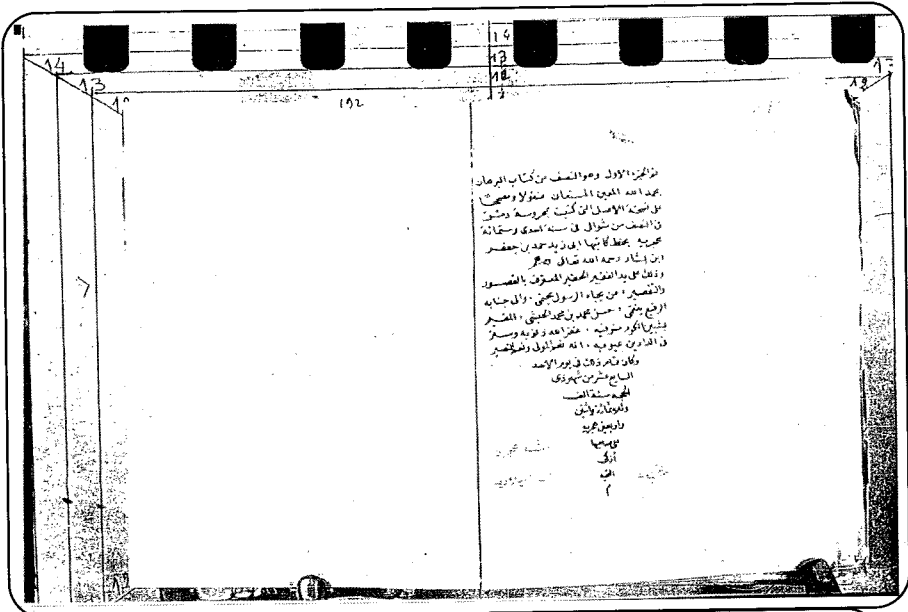 192
تم الجزء الاول وهو النصف من كتاب البرهان
بحمد الله المعين المستعان منقولا ومصححا
على نسخة الاصل التى كتبت بمحروسة دمشق
فى النصف من شوال فى سنة احدى وستمائة
هجرية بخط كاتبها ابى زيد حمد بن جعفر
ابن بشار رحمه الله تعالى
وذلك على يد الفقير الحقير المعترف بالقصور
والتقصير، من بجاه الرسول يحتمى، والى جنابه
الرفيع ينتمى، حسن محمد بن محمد الحبشى، المقيم
غفر الله ذنوبه وستر
فى الدارين عيوبه، انه نعم المولى ونعم النصير
وكان تمام ذلك فى يوم الاحد
السابع عشر من شهر ذى
الحجة سنة الف
وثلاثمائة واثنين
واربعين هجرية
على صاحبها
أزكى
التحية
م